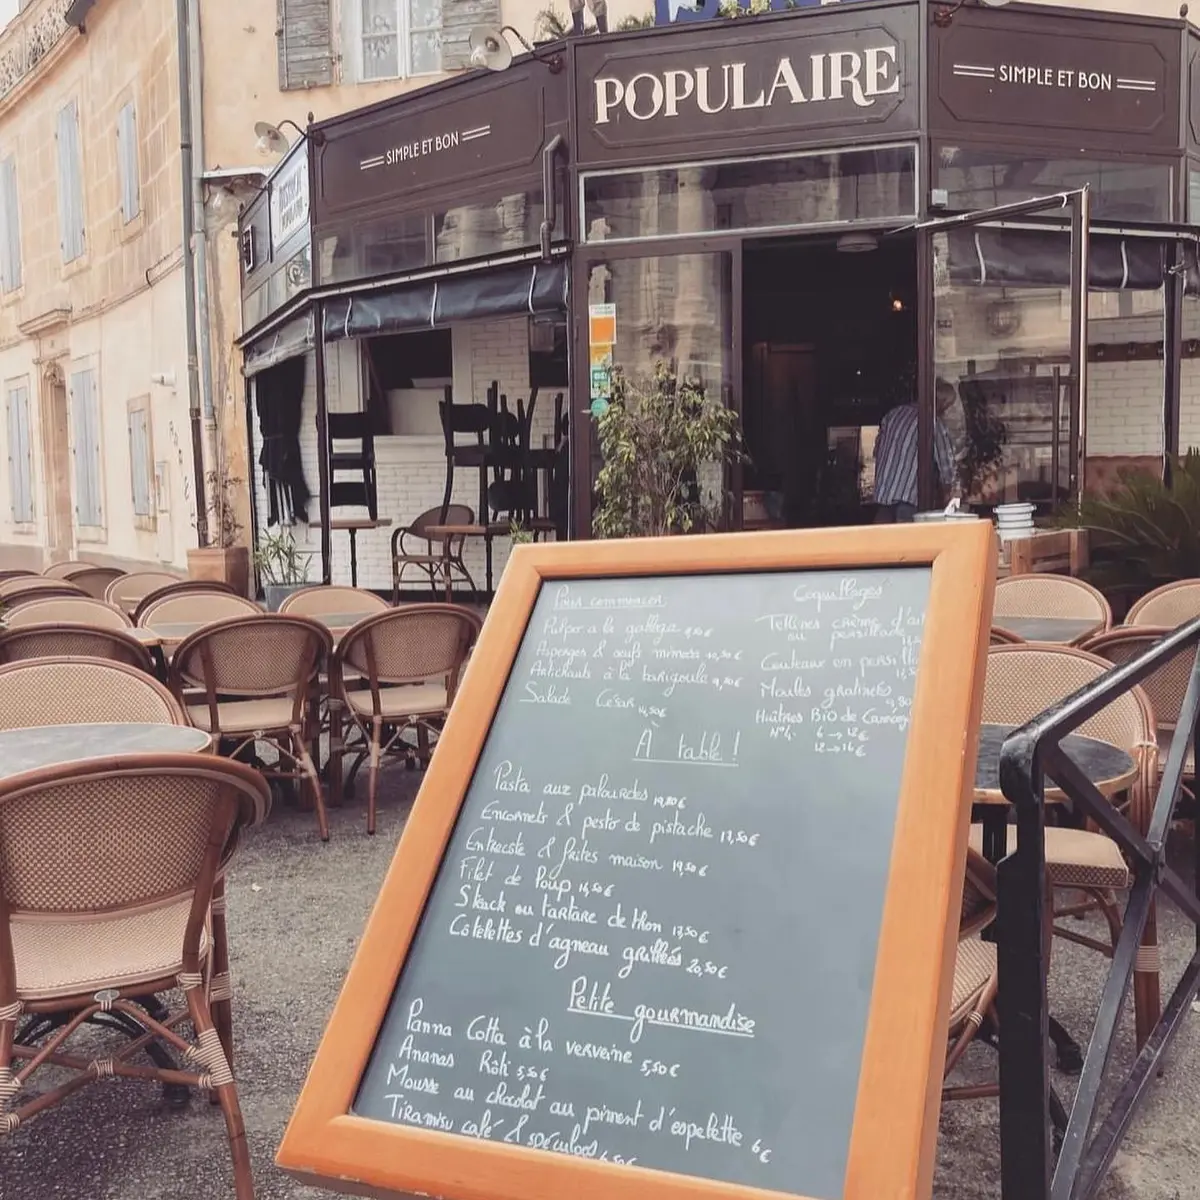 POPULAIRE
SIMPLE ET BON
SIMPLE ET BON
POPULAIRE
Pour commencer
Pulpo a la gallega 9,50€
Asperges & oeufs mimosa 10,50€
Artichauts à la barigoule 9,80€
Salade César 14,50€
Coquillages
Tellines crème d'ail
ou persillade
Couteaux en persilla
Moules gratinées 9,80
Huîtres BIO de Camarg
N°4. 6→12€
12→16€
À table !
Pasta aux palourdes 19,80€
Encornets & pesto de pistache 17,50€
Entrecôte & frites maison 19,50€
Filet de Poup 16,50€
Steack ou tartare de thon 17,50€
Côtelettes d'agneau grillées 20,50€
Petite gourmandise
Panna Cotta à la verveine 5,50€
Ananas Rôti 5,50€
Mousse au chocolat au piment d'espelette 6€
Tiramisu café & spéculoos 6,50€